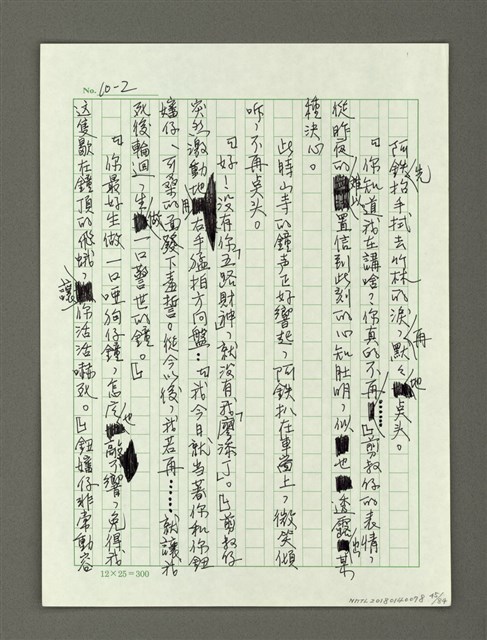 No. 10-2
阿鉄先抬手拭去竹林的淚，再默默地点头。
「你知道我在講啥？你真的不再……」剪叔仔的表情，
從昨夜的難以置信到此刻的心知肚明，似也透露出某
種決心。
此時山寺的鐘声正好響起，阿鉄扒在車窗上，微笑傾
听，不再点头。
「好！没有你『五路財神』，就没有我廖添丁。」剪叔仔
突然激動地用右手猛拍方向盤：「我今日就当著你和你鈕
嬸仔、可發的面發下毒誓。從今以後，我若再……就讓我
死後輪迴，生做一口警世的鐘。」
「你最好生做一口啞狗仔鐘，怎庅敲也不響，免得我
这隻歇在鐘頂的飛蛾，讓你活活嚇死。」鈕嬸仔非常動容
12×25=300
NMTL20180140098 45/84